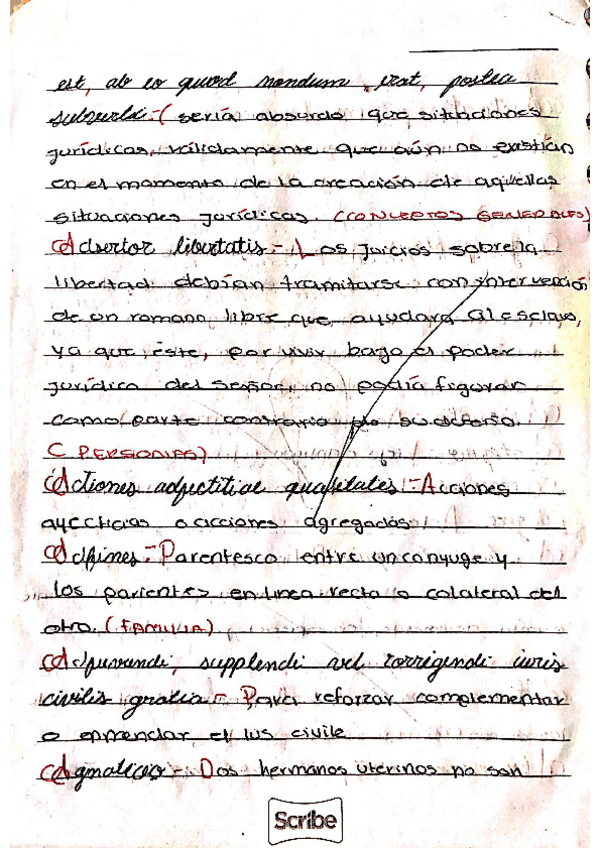 est, ab eo quod nondum erat, postea
(sería absurdo que situaciones
jurídicas, válidamente que aún no existían
en el momento de la creación de aquellas
situaciones jurídicas. (CONCEPTOS GENERALES)
Adsertor libertatis.- Los juicios sobre la
libertad debían tramitarse con intervención
de un romano libre que ayudara al esclavo,
ya que éste, por vivir bajo el poder
jurídico del señor, no podía figurar
como parte contraria de su
( PERSONAS)
Actiones adjectitiae qualitates.- Acciones
ayecticias o acciones agregadas
Adfines.- Parentesco entre un conyuge y
los parientes en linea recta o colateral del
otro. (FAMILIA)
Adjuvandi, supplendi vel corrigendi iuris
civilis gratia.- Para reforzar complementar
o enmendar el ius civile
Agnaticio.- Dos hermanos uterinos no son
Scribe